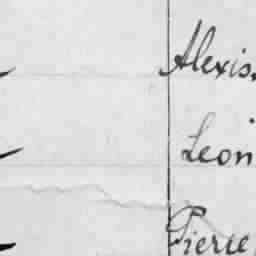 Alexis.
Léon
Pierre